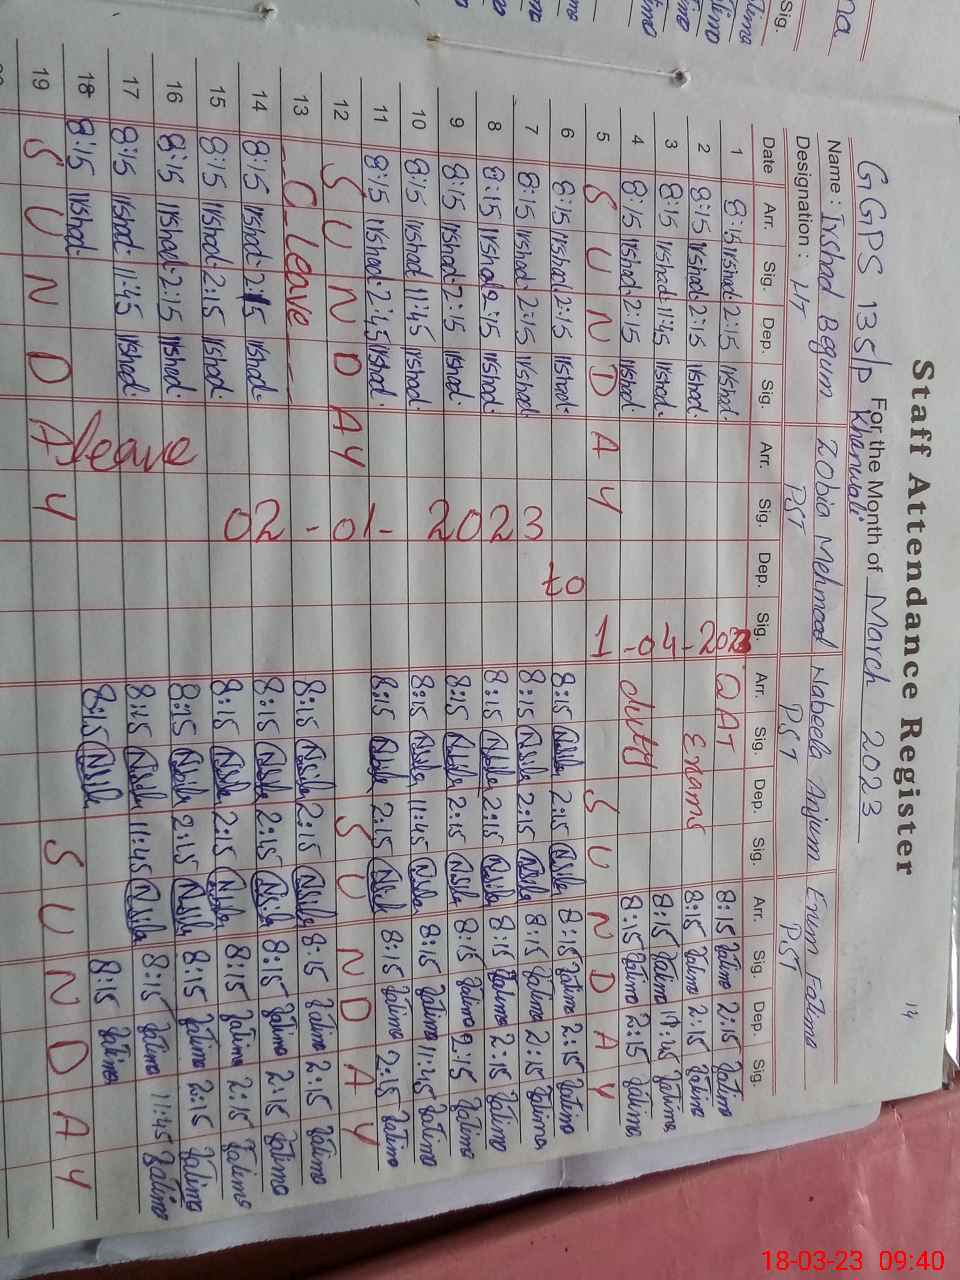 Staff Attendance Register
14
GGPS 13S/P For the Month of March 2023
Khanwali
Name: Irshad Begum Zobia Mehmood Nabeela Anjum Erum Fatima
Designation: HT PST PST PST
Date Arr. Sig. Dep. Sig. Arr. Sig. Dep. Sig. Arr. Sig. Dep. Sig. Arr. Sig. Dep. Sig.
1 8:15 Irshad. 2:15 Irshad. QAT 8:15 Fatima 2:15 Fatima
2 8:15 Irshad. 2:15 Irshad. 1-04-2023 Exams 8:15 Fatima 2:15 Fatima
3 8:15 Irshad. 11:45 Irshad. 8:15 Fatima 11:45 Fatima
4 8:15 Irshad 2:15 Irshad. duty 8:15 Fatima 2:15 Fatima
5 S U N D A Y S U N D A Y
6 8:15 Irshad 2:15 Irshad. to 8:15 Nabila 2:15 Nabila 8:15 Fatima 2:15 Fatima
7 8:15 Irshad. 2:15 Irshad. 02-01-2023 8:15 Nabila 2:15 Nabila 8:15 Fatima 2:15 Fatima
8 8:15 Irshad 2:15 Irshad. 8:15 Nabila 2:15 Nabila 8:15 Fatima 2:15 Fatima
9 8:15 Irshad. 2:15 Irshad. 8:15 Nabila 2:15 Nabila 8:15 Fatima 2:15 Fatima
10 8:15 Irshad 11:45 Irshad. 8:15 Nabila 11:45 Nabila 8:15 Fatima 11:45 Fatima
11 8:15 Irshad. 2:45 Irshad. 8:15 Nabila 2:15 Nabila 8:15 Fatima 2:15 Fatima
12 S U N D A Y S U N D A Y
13 C_leave 8:15 Nabila 2:15 Nabila 8:15 Fatima 2:15 Fatima
14 8:15 Irshad. 2:15 Irshad. 8:15 Nabila 2:15 Nabila 8:15 Fatima 2:15 Fatima
15 8:15 Irshad. 2:15 Irshad. 8:15 Nabila 2:15 Nabila 8:15 Fatima 2:15 Fatima
16 8:15 Irshad. 2:15 Irshad. leave 8:15 Nabila 2:15 Nabila 8:15 Fatima 2:15 Fatima
17 8:15 Irshad. 11:45 Irshad. 8:15 Nabila 11:45 Nabila 8:15 Fatima 11:45 Fatima
18 8:15 Irshad. 8:15 Nabila 8:15 Fatima
19 S U N D A Y S U N D A Y
18-03-23 09:40